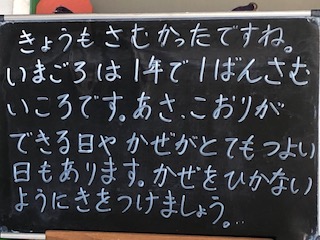 きょうも さむかったですね。
いまごろは1年で1ばんさむ
いころです。あさ、こおりが
できる日や かぜがとてもつよい
日もあります。かぜをひかない
ようにきをつけましょう。